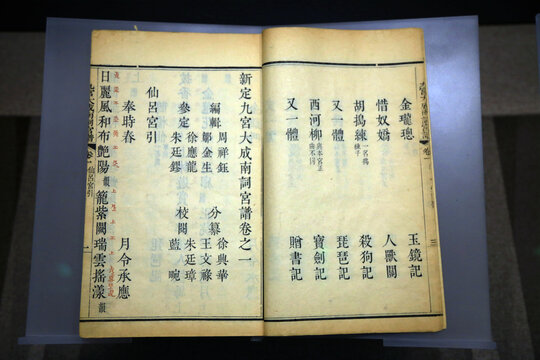 三
金瓏璁 玉鐲記
惜奴嬌 人獸關
胡搗練 一名搗練子 殺狗記
又一體 琵琶記
西河柳 與本宮正曲不同 寶劍記
又一體 贈書記
新定九宮大成南詞宮譜卷之一
周祥鈺 徐興華
編輯 鄒金生 分纂 王文祿
徐應龍 朱廷璋
參定 朱廷鏐 校閱 藍畹
仙呂宮引
奉時春 月令承應
日麗風和布艷陽韻籠紫闕瑞雲搖漾韻
仙呂宮引 一